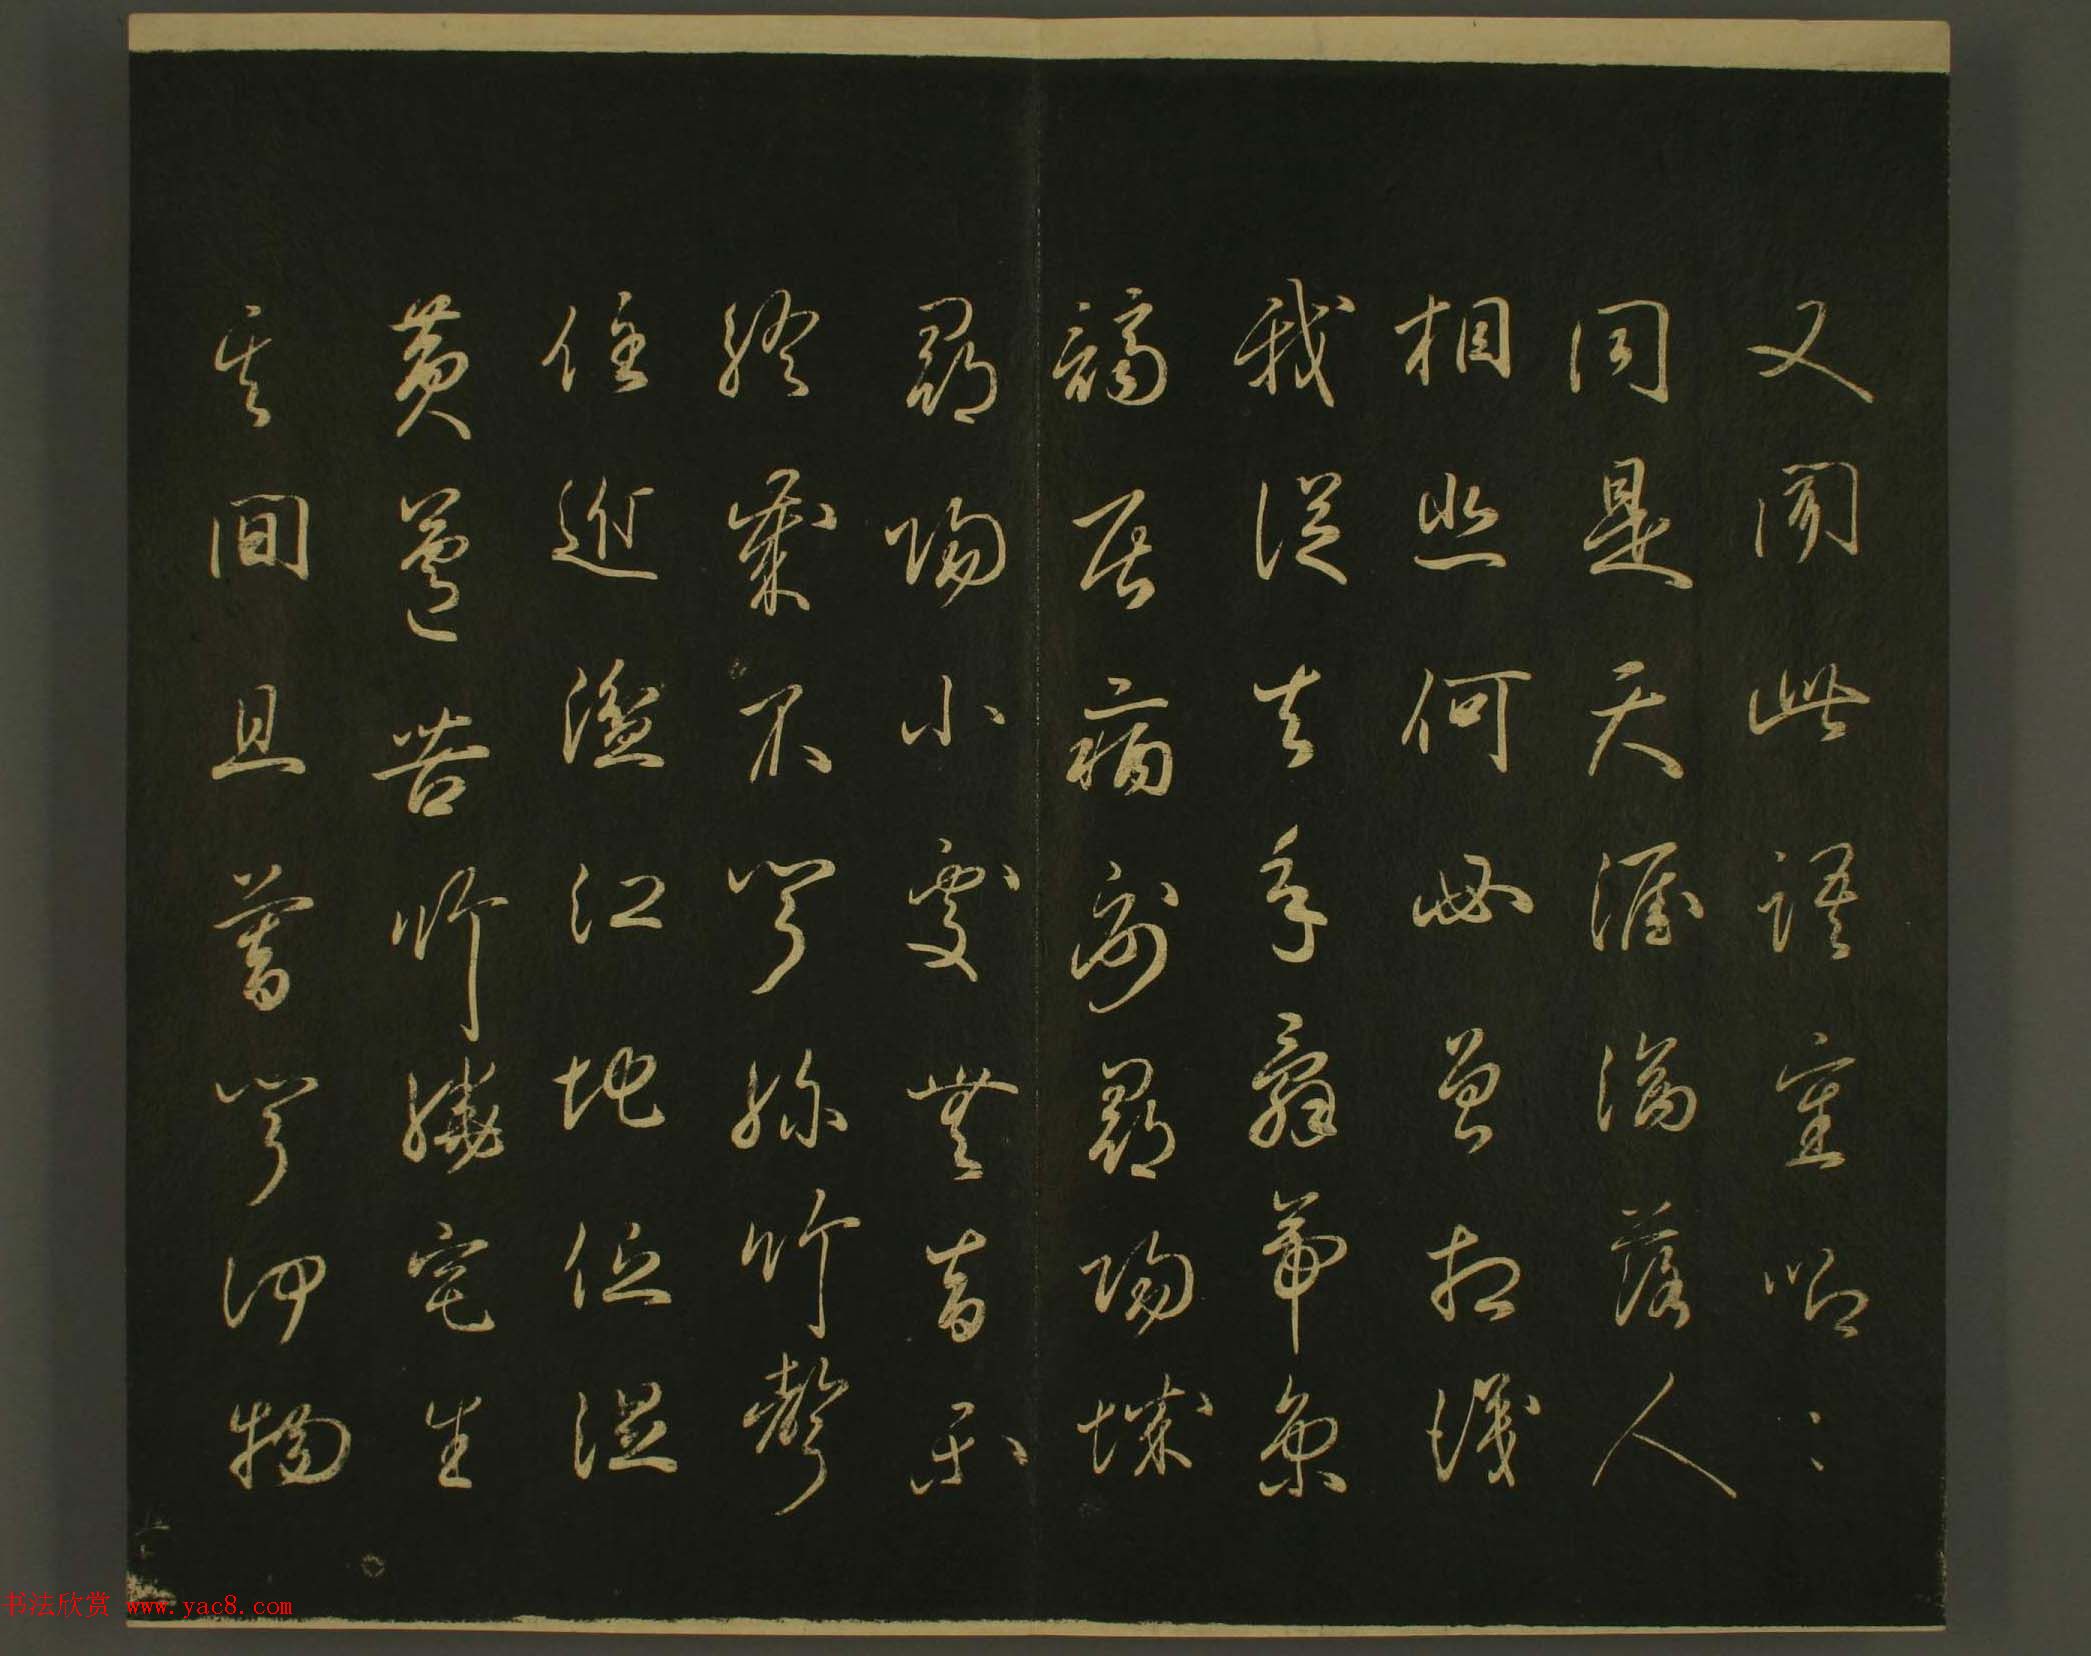 又聞此語重唧〻
同是天涯淪落人
相逢何必曾相識
我從去年辭帝京
謫居病卧潯陽城
潯陽小處無音樂
終歲不聞絲竹聲
住近湓江地低濕
黃蘆苦竹繞宅生
其間旦暮聞何物
书法欣赏 www.yac8.com